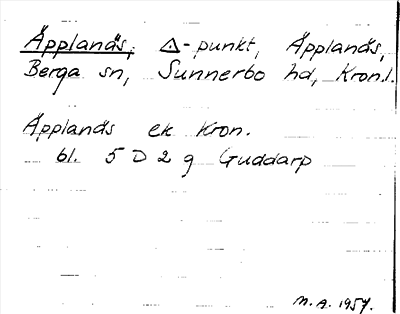 Äpplanäs, △-punkt, Äpplanäs,
Berga sn, Sunnerbo hd, Kron.l.
Äpplanäs ek Kron.
bl. 5 D 2 g Guddarp
M.A. 1957.